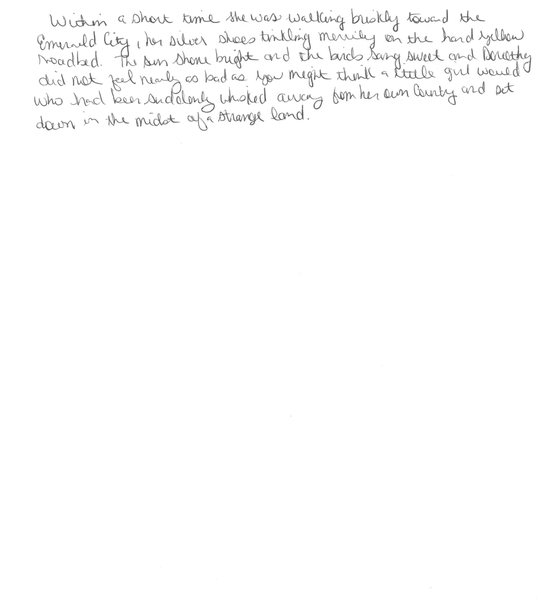 Within a short time she was walking briskly toward the
Emerald City, her silver shoes tinkling merrily on the hard yellow
roadbed. The sun shone bright and the birds sang sweet and Dorothy
did not feel nearly as bad as you might think a little girl would
who had been suddenly whisked away from her own County and set
down in the midst of a strange land.